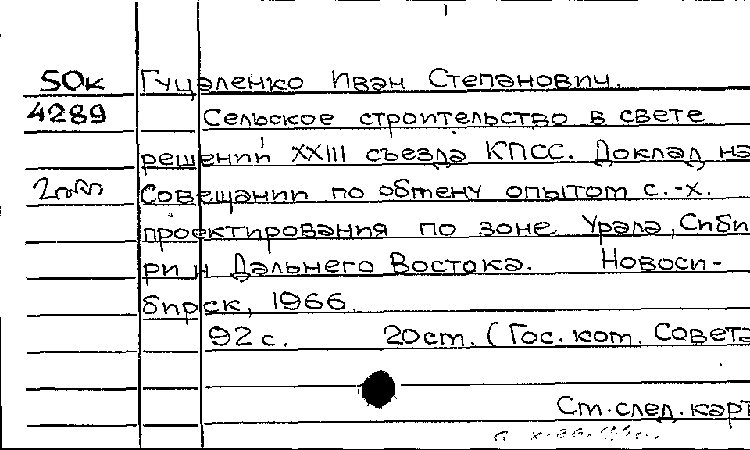 50к Гуцаленко Иван Степанович.
4289 Сельское строительство в свете
решений XXIII съезда КПСС. Доклад на
Совещании по обмену опытом с.-х.
проектирования по зоне Урала, Сиби
ри и Дальнего Востока. Новоси-
бирск, 1966.
92 с. 20см. (Гос. ком. Совета
См. след. карт